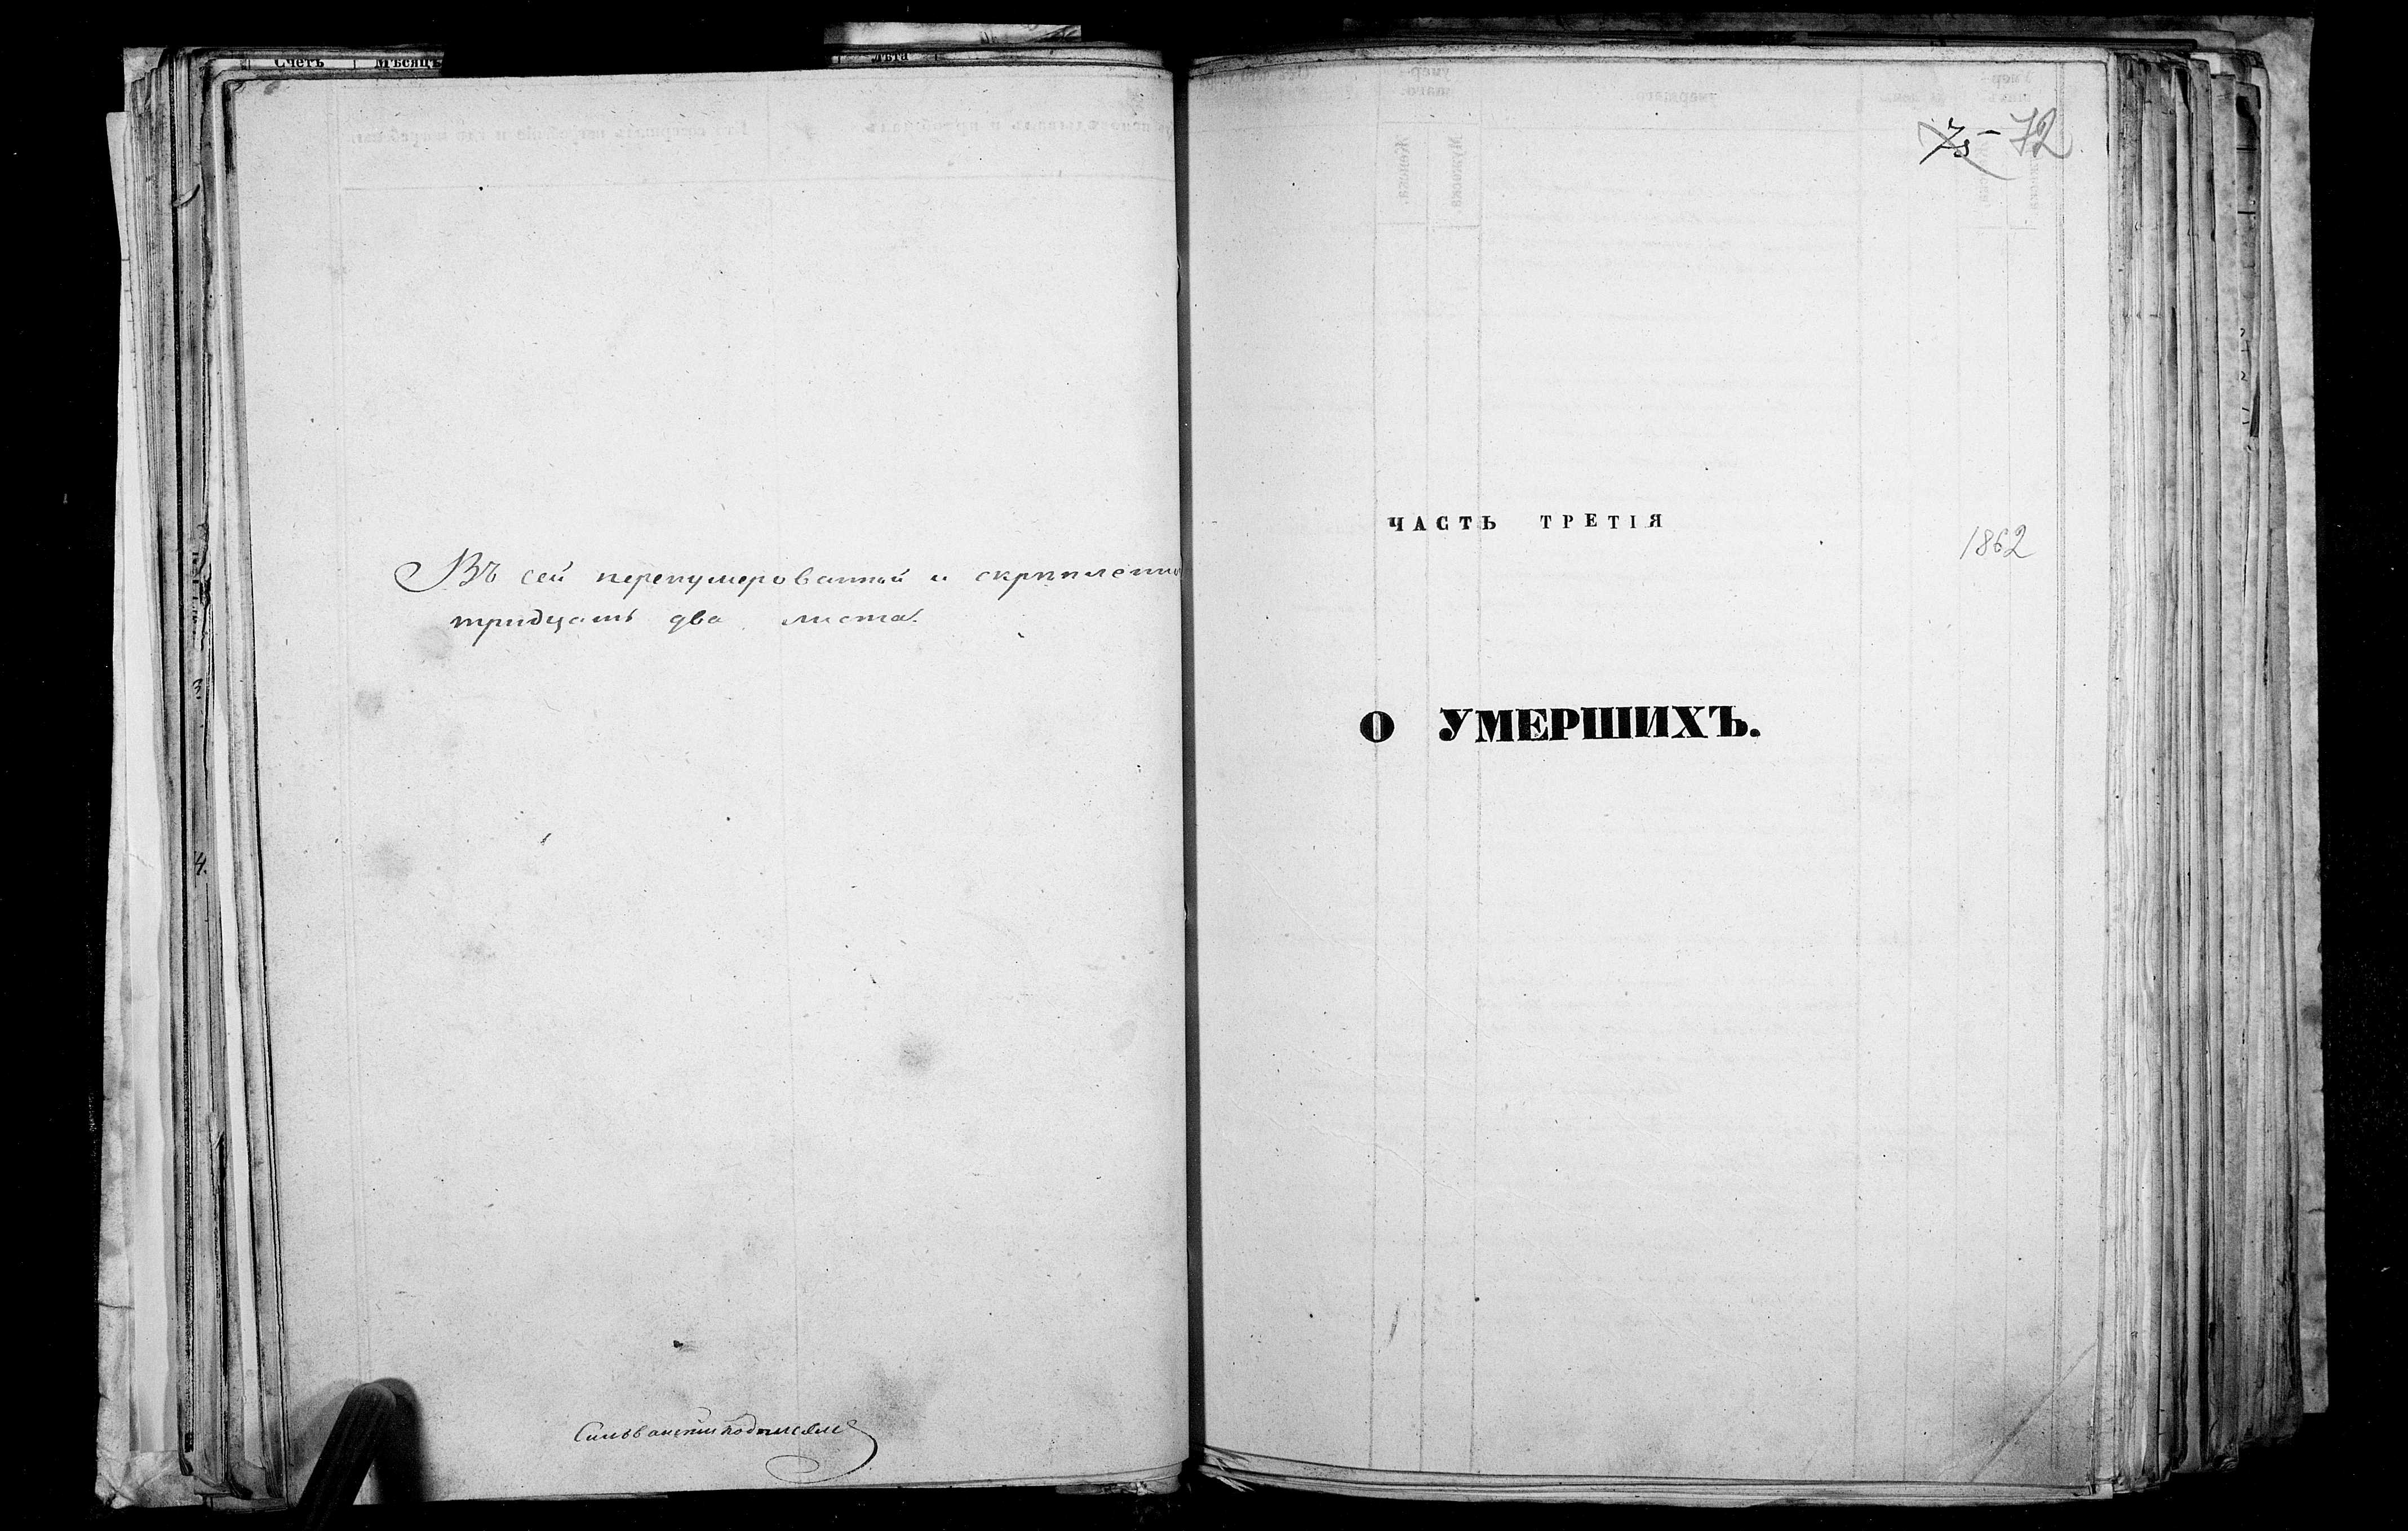 Счетъ Мѣсяцъ
лѣта
Въ сей перенумерованной и скрѣпленно
тридцать два листа.
72
ЧАСТЬ ТРЕТІЯ
1862
О УМЕРШИХЪ.
4.